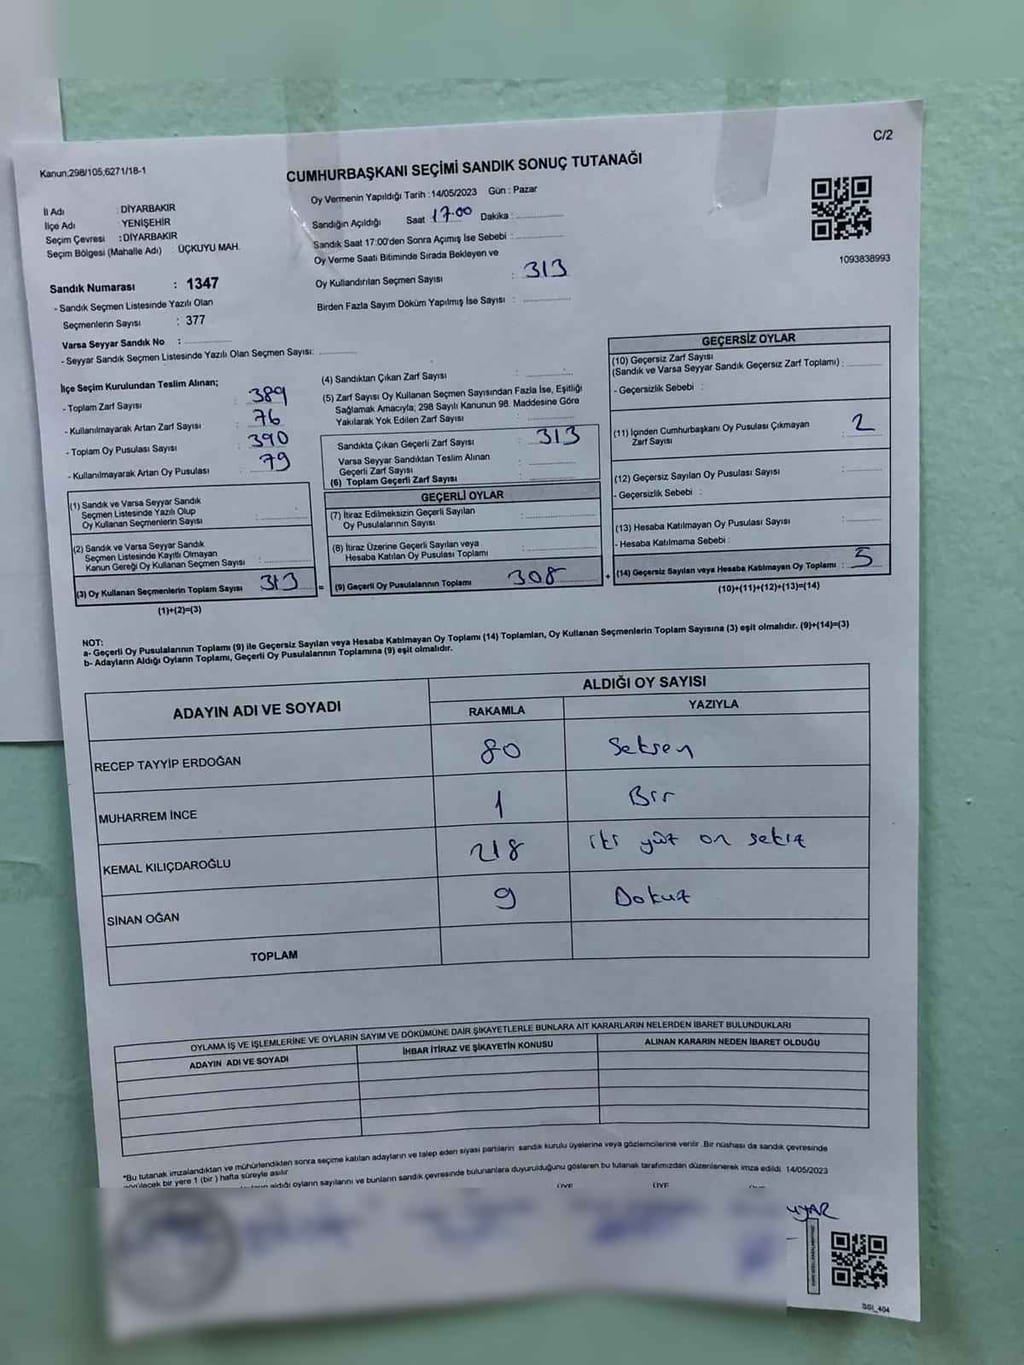 C/2
Kanun:298/105,6271/18-1
CUMHURBAŞKANI SEÇİMİ SANDIK SONUÇ TUTANAĞI
Oy Vermenin Yapıldığı Tarih :14/05/2023 Gün : Pazar
İl Adı : DİYARBAKIR
İlçe Adı : YENİŞEHİR
Seçim Çevresi : DİYARBAKIR
Seçim Bölgesi (Mahalle Adı) ÜÇKUYU MAH.
Sandığın Açıldığı Saat 17.00 Dakika :
Sandık Saat 17:00'den Sonra Açımış İse Sebebi :
Oy Verme Saati Bitiminde Sırada Bekleyen ve
Oy Kullandırılan Seçmen Sayısı : 313
Birden Fazla Sayım Döküm Yapılmış İse Sayısı :
1093838993
Sandık Numarası : 1347
- Sandık Seçmen Listesinde Yazılı Olan
Seçmenlerin Sayısı : 377
Varsa Seyyar Sandık No :
- Seyyar Sandık Seçmen Listesinde Yazılı Olan Seçmen Sayısı:
İlçe Seçim Kurulundan Teslim Alınan;
- Toplam Zarf Sayısı : 389
- Kullanılmayarak Artan Zarf Sayısı : 76
- Toplam Oy Pusulası Sayısı : 390
- Kullanılmayarak Artan Oy Pusulası : 79
(1) Sandık ve Varsa Seyyar Sandık
Seçmen Listesinde Yazılı Olup
Oy Kullanan Seçmenlerin Sayısı :
(2) Sandık ve Varsa Seyyar Sandık
Seçmen Listesinde Kayıtlı Olmayan
Kanun Gereği Oy Kullanan Seçmen Sayısı :
(3) Oy Kullanan Seçmenlerin Toplam Sayısı 313 =
(1)+(2)=(3)
(4) Sandıktan Çıkan Zarf Sayısı :
(5) Zarf Sayısı Oy Kullanan Seçmen Sayısından Fazla İse, Eşitliği
Sağlamak Amacıyla; 298 Sayılı Kanunun 98. Maddesine Göre
Yakılarak Yok Edilen Zarf Sayısı :
Sandıkta Çıkan Geçerli Zarf Sayısı : 313
Varsa Seyyar Sandıktan Teslim Alınan
Geçerli Zarf Sayısı :
(6) Toplam Geçerli Zarf Sayısı :
GEÇERLİ OYLAR
(7) İtiraz Edilmeksizin Geçerli Sayılan
Oy Pusulalarının Sayısı :
(8) İtiraz Üzerine Geçerli Sayılan veya
Hesaba Katılan Oy Pusulası Toplamı :
(9) Geçerli Oy Pusulalarının Toplamı : 308 +
GEÇERSİZ OYLAR
(10) Geçersiz Zarf Sayısı
(Sandık ve Varsa Seyyar Sandık Geçersiz Zarf Toplamı) :
- Geçersizlik Sebebi :
(11) İçinden Cumhurbaşkanı Oy Pusulası Çıkmayan
Zarf Sayısı : 2
(12) Geçersiz Sayılan Oy Pusulası Sayısı :
- Geçersizlik Sebebi :
(13) Hesaba Katılmayan Oy Pusulası Sayısı :
- Hesaba Katılmama Sebebi :
(14) Geçersiz Sayılan veya Hesaba Katılmayan Oy Toplamı : 5
(10)+(11)+(12)+(13)=(14)
NOT:
a- Geçerli Oy Pusulalarının Toplamı (9) ile Geçersiz Sayılan veya Hesaba Katılmayan Oy Toplamı (14) Toplamları, Oy Kullanan Seçmenlerin Toplam Sayısına (3) eşit olmalıdır. (9)+(14)=(3)
b- Adayların Aldığı Oyların Toplamı, Geçerli Oy Pusulalarının Toplamına (9) eşit olmalıdır.
ADAYIN ADI VE SOYADI ALDIĞI OY SAYISI
RAKAMLA YAZIYLA
RECEP TAYYİP ERDOĞAN 80 Seksen
MUHARREM İNCE 1 Bir
KEMAL KILIÇDAROĞLU 218 iki yüz on sekiz
SİNAN OĞAN 9 Dokuz
TOPLAM
OYLAMA İŞ VE İŞLEMLERİNE VE OYLARIN SAYIM VE DÖKÜMÜNE DAİR ŞİKAYETLERLE BUNLARA AİT KARARLARIN NELERDEN İBARET BULUNDUKLARI
ADAYIN ADI VE SOYADI İHBAR İTİRAZ VE ŞİKAYETİN KONUSU ALINAN KARARIN NEDEN İBARET OLDUĞU
*Bu tutanak imzalandıktan ve mühürlendikten sonra seçime katılan adayların ve talep eden siyasi partilerin sandık kurulu üyelerine veya gözlemcilerine verilir .Bir nüshası da sandık çevresinde
görülecek bir yere 1 (bir ) hafta süreyle asılır
aldığı oyların sayılarını ve bunların sandık çevresinde bulunanlara duyurulduğunu gösteren bu tutanak tarafımızdan düzenlenerek imza edildi. 14/05/2023
ÜYE ÜYE
UYAR